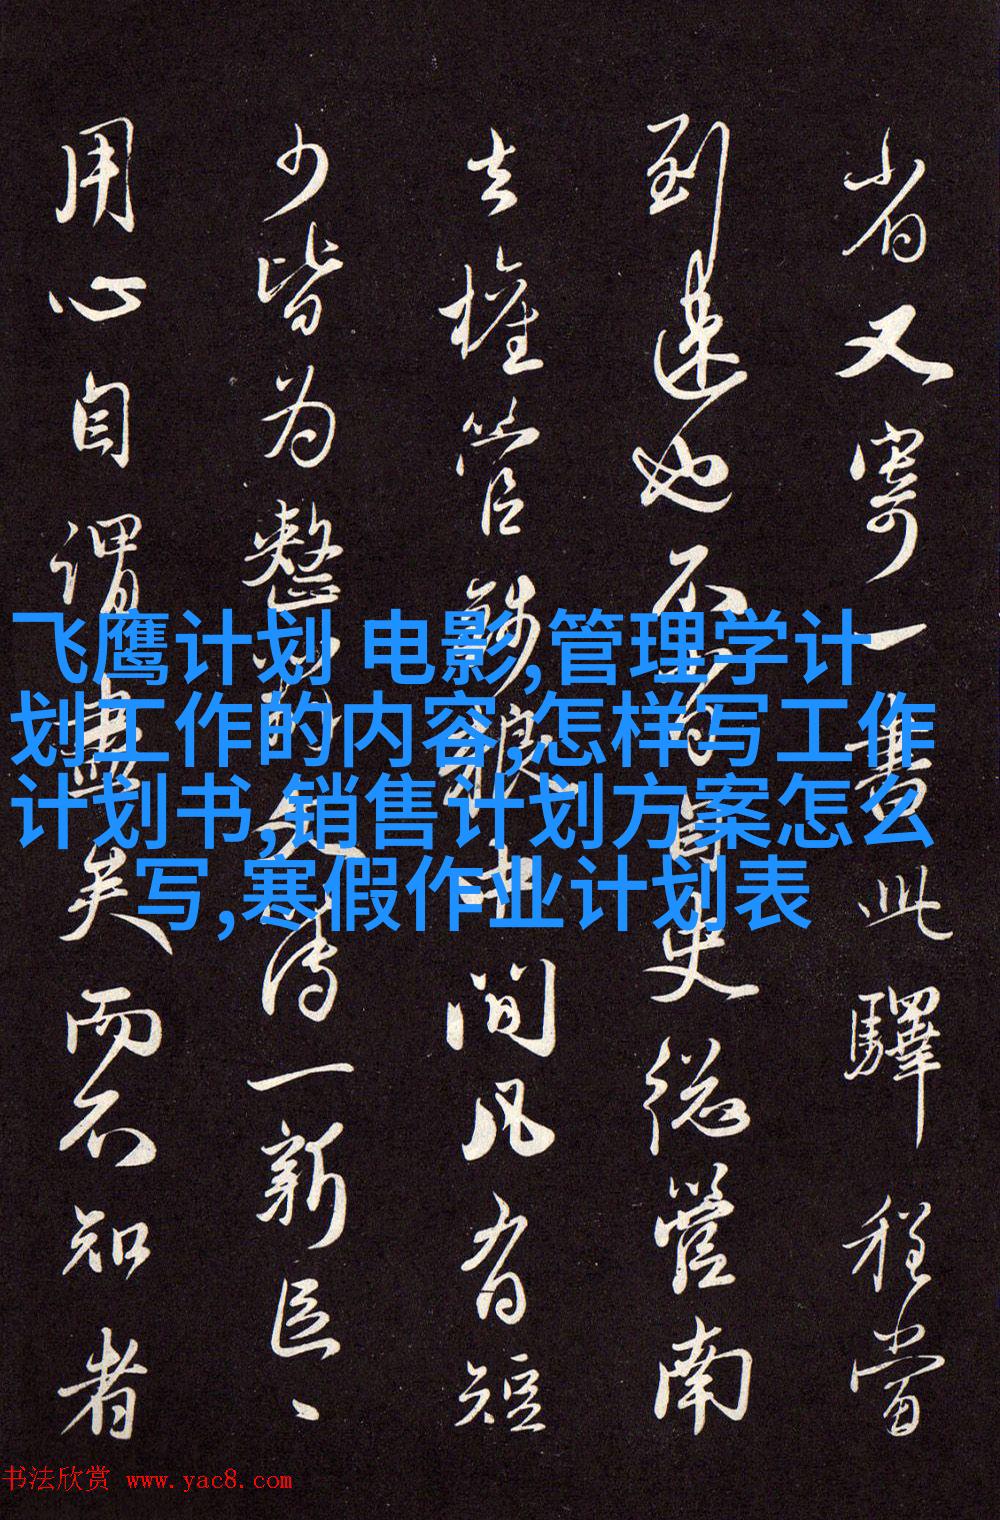 省又寄一書此驛程當
到速也不
史总管南
去權管
中间凡有短
少皆为整
文
传一新臣、
用心自谓盡矣而不知者
飞鹰计划 电影,管理学计
划工作的内容,怎样写工作
计划书,销售计划方案怎么
写,寒假作业计划表
书法欣赏 www.yac8.com